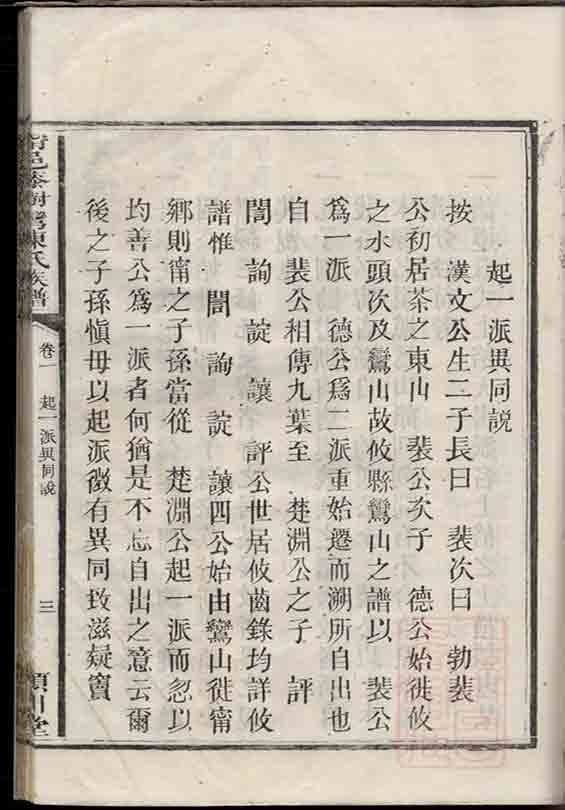 起一派異同說
按 漢文公生二子長曰 裴次曰 勃裴
公初居茶之東山 裴公次子 德公始徙攸
之水頭次及鸞山故攸縣鸞山之譜以 裴公
爲一派 德公爲二派重始遷而溯所自出也
自 裴公相傳九葉至 楚淵公之子 評
誾 詢 諚 讓 評公世居攸齒錄均詳攸
譜惟 誾 詢 諚 讓四公始由鸞山徙甯
鄉則甯之子孫當從 楚淵公起一派而忽以
均善公爲一派者何猶是不忘自出之意云爾
後之子孫愼毋以起派微有異同致滋疑竇
陳氏族譜
卷一 起一派異同說
三
川堂